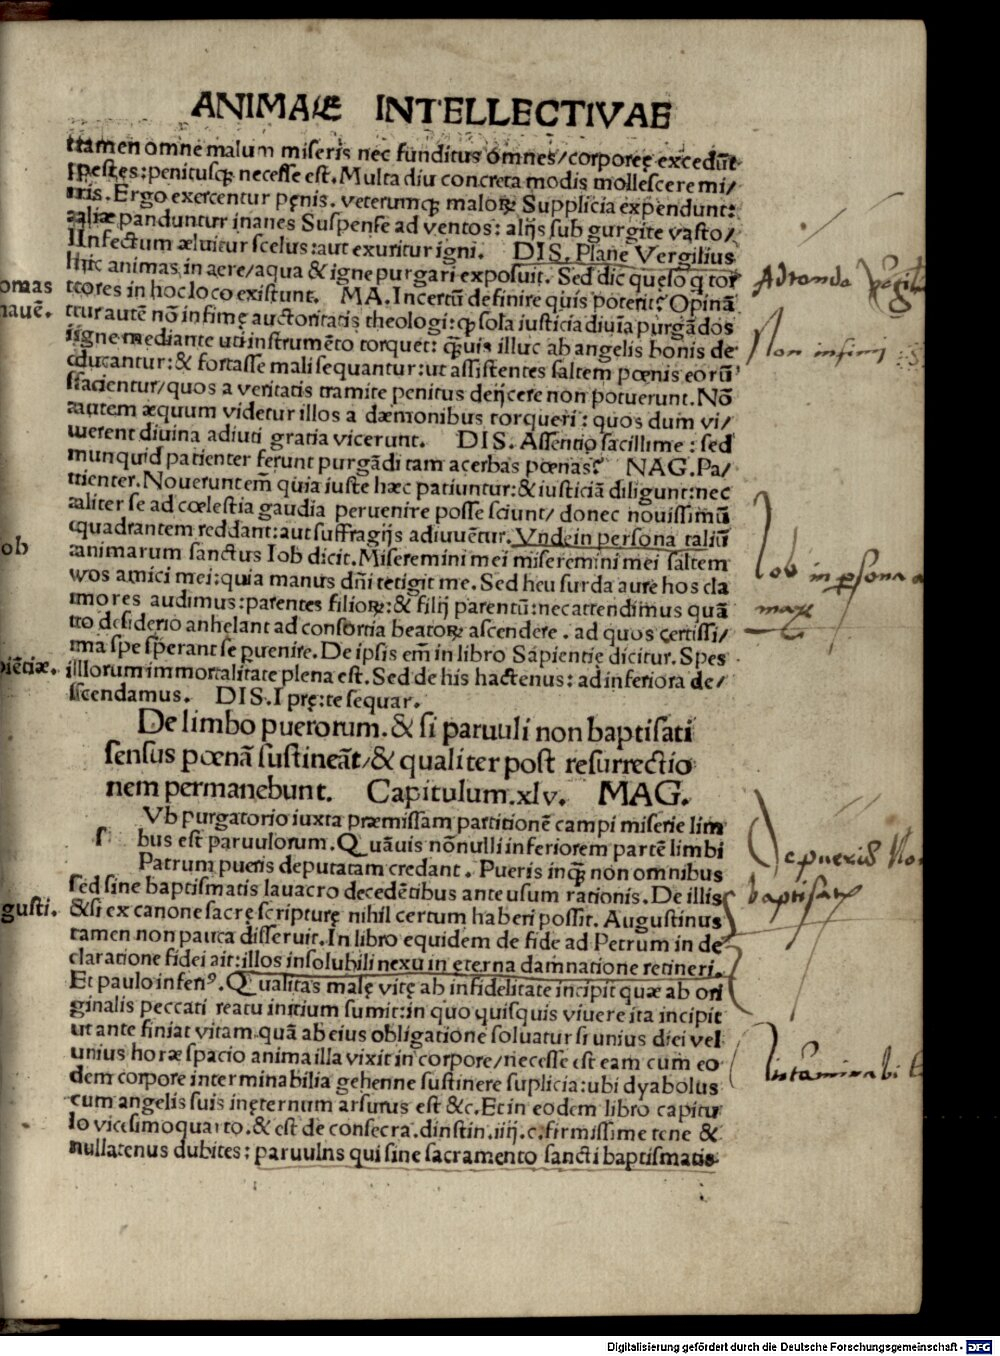 ANIMAE INTELLECTIVAE
tamen omne malum miseris nec funditus omnes/corporeę excedũt
pestes:penitusq̃ necesse est.Multa diu concreta modis mollescere mi/
ris.Ergo exercentur pęnis. veterumq̃ maloꝝ Supplicia expendunt:
aliæ panduntur inanes Suspense ad ventos: alijs sub gurgite vasto/
Infectum æluitur scelus:aut exuritur igni. DIS. Plane Vergilius
hic animas in aere/aqua & igne purgari exposuit. Sed dic quęso q̃ tor
omas
tores in hoc loco existunt. MA.Incertũ definire quis poterit? Opinã
naue̅.
tur autẽ nõ infimę auctoritatis theologi:ꝙ sola iusticia diuĩa purgãdos
igne mediante uti instrumẽto torquet: q̃uis illuc ab angelis bonis de
ducantur:& fortasse mali sequantur:ut assistentes saltem pœnis eorũ
facientur/quos a veritatis tramite penitus deijcere non potuerunt.Nõ
autem æquum videtur illos a dæmonibus torqueri: quos dum vi/
uerent diuina adiuti gratia vicerunt. DIS. Assentio facillime: sed
munquid patienter ferunt purgãdi tam acerbas pœnas? NAG.Pa/
tienter.Nouerunt em̃ quia iuste hæc patiuntur:& iusticiã diligunt:nec
aliter se ad cœlestia gaudia peruenire posse sciunt/ donec nouissimũ
quadrantem reddant:aut suffragijs adiuuẽtur.Vnde in persona taliũ
ob
animarum sanctus Iob dicit.Miseremini mei miseremini mei saltem
vos amici mei:quia manus dñi tetigit me.Sed heu surda aure hos cla
mores audimus:parentes filioꝝ:& filij parentũ:nec attendimus quã
to desiderio anhelant ad consortia beatoꝝ ascendere. ad quos certissi/
ma spe sperant se ꝑuenire.De ipsis em̃ in libro Sapientię dicitur.Spes
piẽtiæ.
illorum immortalitate plena est.Sed de his hactenus: ad inferiora de/
scendamus. DIS.I prę:te sequar.
De limbo puerorum.& si paruuli non baptisati
sensus pœnã sustineãt/& qualiter post resurrectio
nem permanebunt. Capitulum.xlv. MAG.
s Vb purgatorio iuxta præmissam partitionẽ campi miserie lim
bus est paruulorum.Quãuis nõnulli inferiorem partẽ limbi
Patrum pueris deputatam credant. Pueris inq̃ non omnibus
sed sine baptismatis lauacro decedẽtibus ante usum rationis.De illis
gusti.
&si ex canone sacrę scripturę nihil certum haberi possit. Augustinus
tamen non pauca disseruit.In libro equidem de fide ad Petrum in de
claratione fidei ait:illos insolubili nexu in eterna damnatione retineri.
Et paulo inferiꝰ.Qualitas malę vitę ab infidelitate incipit quæ ab ori
ginalis peccati reatu initium sumit:in quo quisquis viuere ita incipit
ut ante finiat vitam quã ab eius obligatione soluatur si unius diei vel
unius horæ spacio anima illa vixit in corpore/necesse est eam cum eo
dem corpore interminabilia gehenne sustinere suplicia:ubi dyabolus
cum angelis suis inęternum arsurus est &c.Et in eodem libro capitu
lo vicesimoquarto.& est de consecra.dinstin.iiij.c.firmissime tene &
nullatenus dubites: paruulns qui sine sacramento sancti baptismatis
Non infimi
Iob in ꝑsona
De pueris No
baptisat
Digitalisierung gefördert durch die Deutsche Forschungsgemeinschaft - DFG